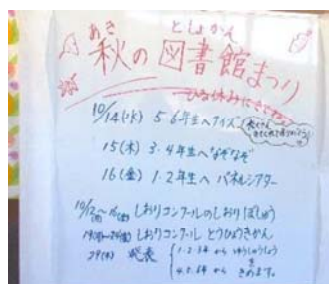 あき としょかん
秋の図書館まつり
ひる休みにきてね
10/14(水) 5・6年生へクイズ
15(木) 3・4年生へなぞなぞ
16(金) 1・2年生へ パネルシアター
しおりコンクールのしおりぼしゅう
しおりコンクール とうひょうきかん
29(木) 発表
1・2・3年 から
4・5・6年 から
きめます。